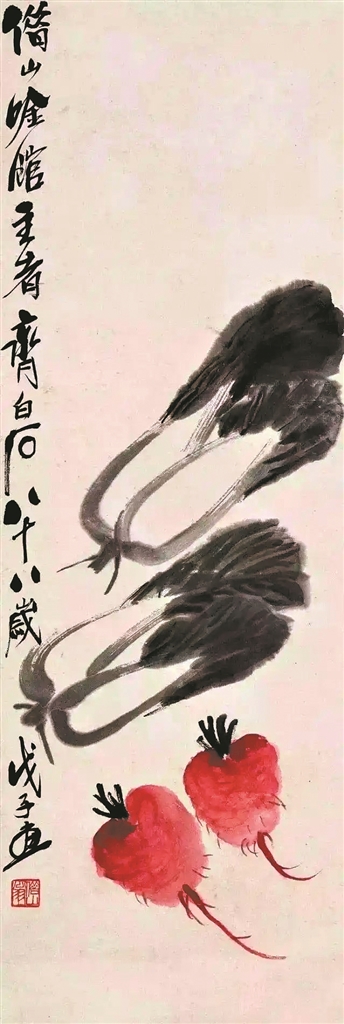 借山唫館主者齊白石八十八歲戊子畫